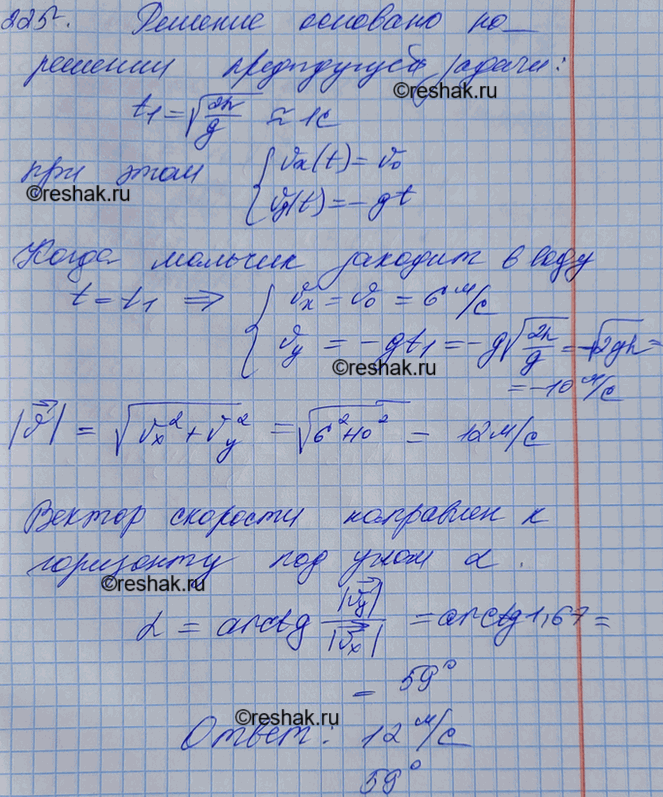 225. Решение основано на
решении предыдущей задачи:
©reshak.ru
t₁ = √(2h/g) ≈ 1с
при этом { vx(t) = v₀
©reshak.ru
vy(t) = -gt
Когда мальчик входит в воду
t = t₁ ⇒ { vx = v₀ = 6 м/с
vy = -gt₁ = -g√(2h/g) = -√2gh =
©reshak.ru
= -10 м/с
|v⃗| = √(vx² + vy²) = √(6²+10²) = 12 м/с
Вектор скорости направлен к
горизонту под углом α.
©reshak.ru
α = arctg |v⃗y|/|v⃗x| = arctg 1,67 =
= 59°
©reshak.ru
Ответ: 12 м/с
59°